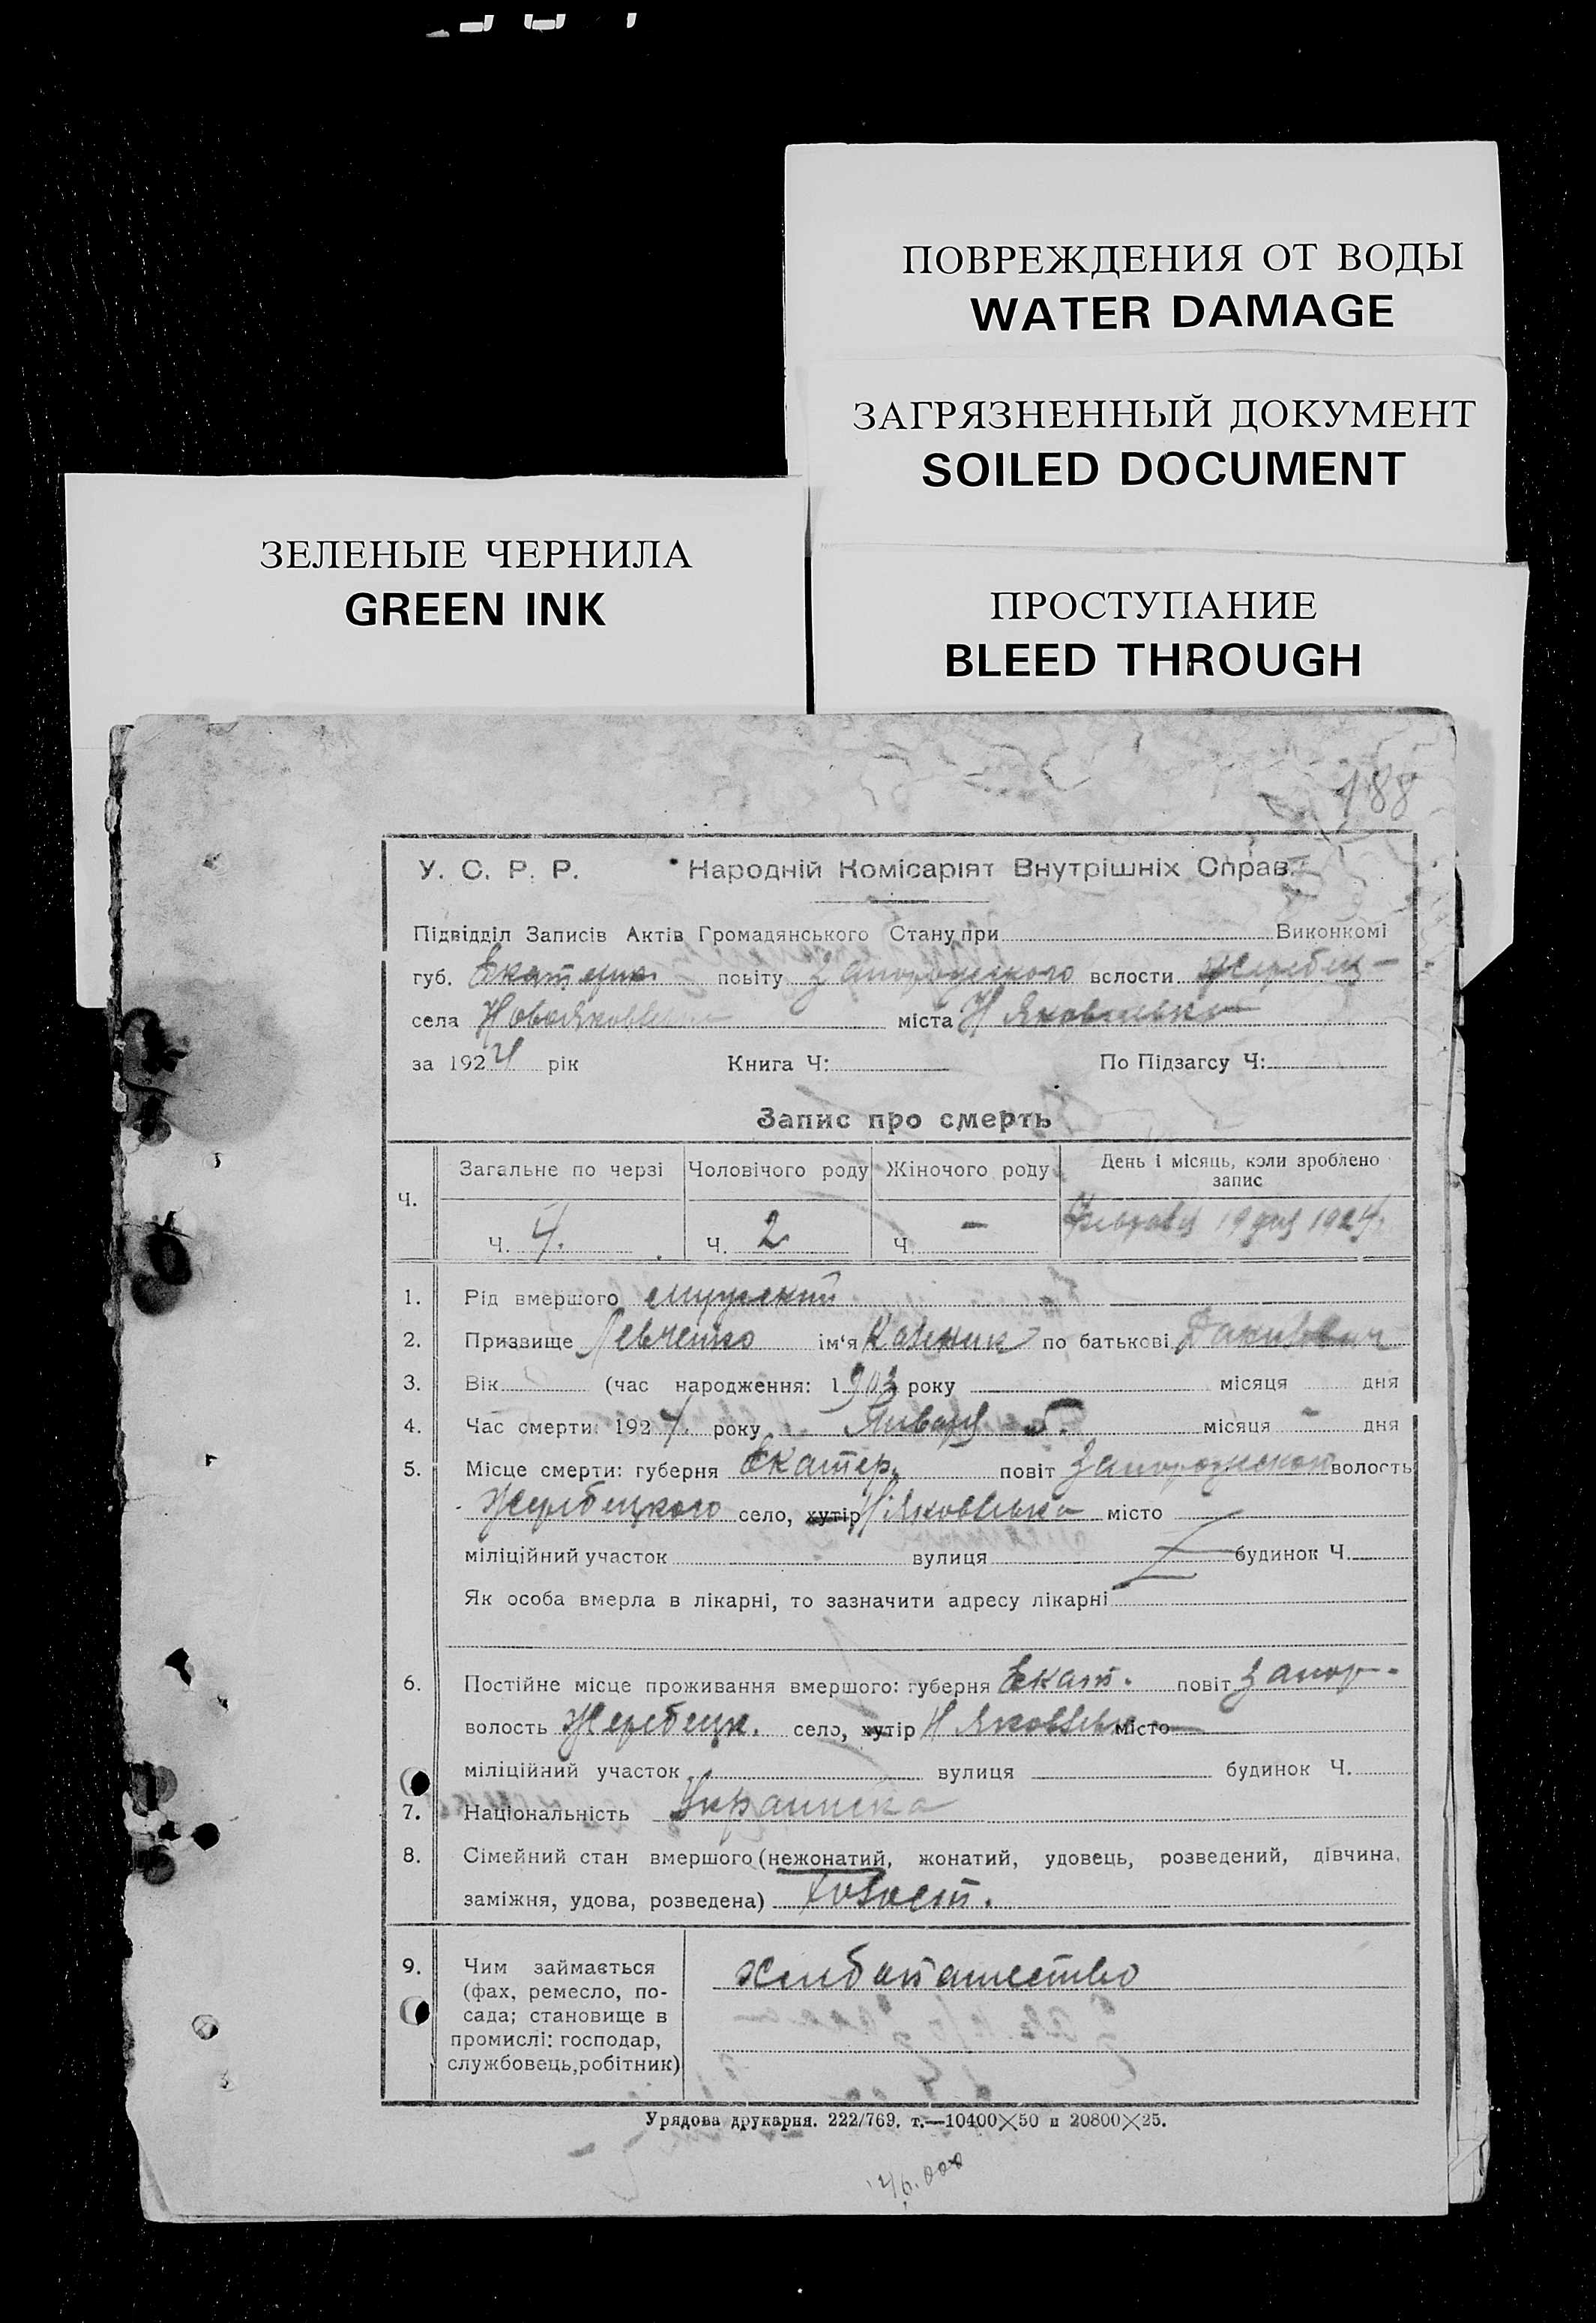 ПОВРЕЖДЕНИЯ ОТ ВОДЫ
WATER DAMAGE
ЗАГРЯЗНЕННЫЙ ДОКУМЕНТ
SOILED DOCUMENT
ЗЕЛЕНЫЕ ЧЕРНИЛА
GREEN INK
ПРОСТУПАНИЕ
BLEED THROUGH
188
У. С. Р. Р. Народній Комісаріят Внутрішніх Справ.
Підвідділ Записів Актів Громадянського Стану при Виконкомі
губ. Екатерин. повіту Запорожского вслости Жеребец-
села Новояковлевка міста Н Яковлевка
за 1924 рік Книга Ч: По Підзагсу Ч:
Запис про смерть
Ч. Загальне по черзі Чоловічого роду Жіночого роду День і місяць, коли зроблено запис
ч. 4. ч. 2 ч. — Февраля 19 дня 1924
1. Рід вмершого мужской
2. Призвище Левченко ім'я Каленик по батькові
3. Вік (час народження: 1903 року місяця дня
4. Час смерти: 1924 року Января 5. місяця дня
5. Місце смерти: губерня Екатер. повіт Запорожской волость
Жеребецкого село, хутір Н Яковлевка місто
міліційний участок вулиця будинок Ч.
Як особа вмерла в лікарні, то зазначити адресу лікарні
6. Постійне місце проживання вмершого: губерня Екат. повіт Запор.
волость Жеребецк. село, хутір Н Яковлевк місто
міліційний участок вулиця будинок Ч.
7. Національність Украинска
8. Сімейний стан вмершого (нежонатий, жонатий, удовець, розведений, дівчина,
заміжня, удова, розведена) холост.
9. Чим займається
(фах, ремесло, по-
сада; становище в
промислі: господар,
службовець, робітник)
хлибопашество
Урядова друкарня. 222/769. т.—10400×50 и 20800×25.